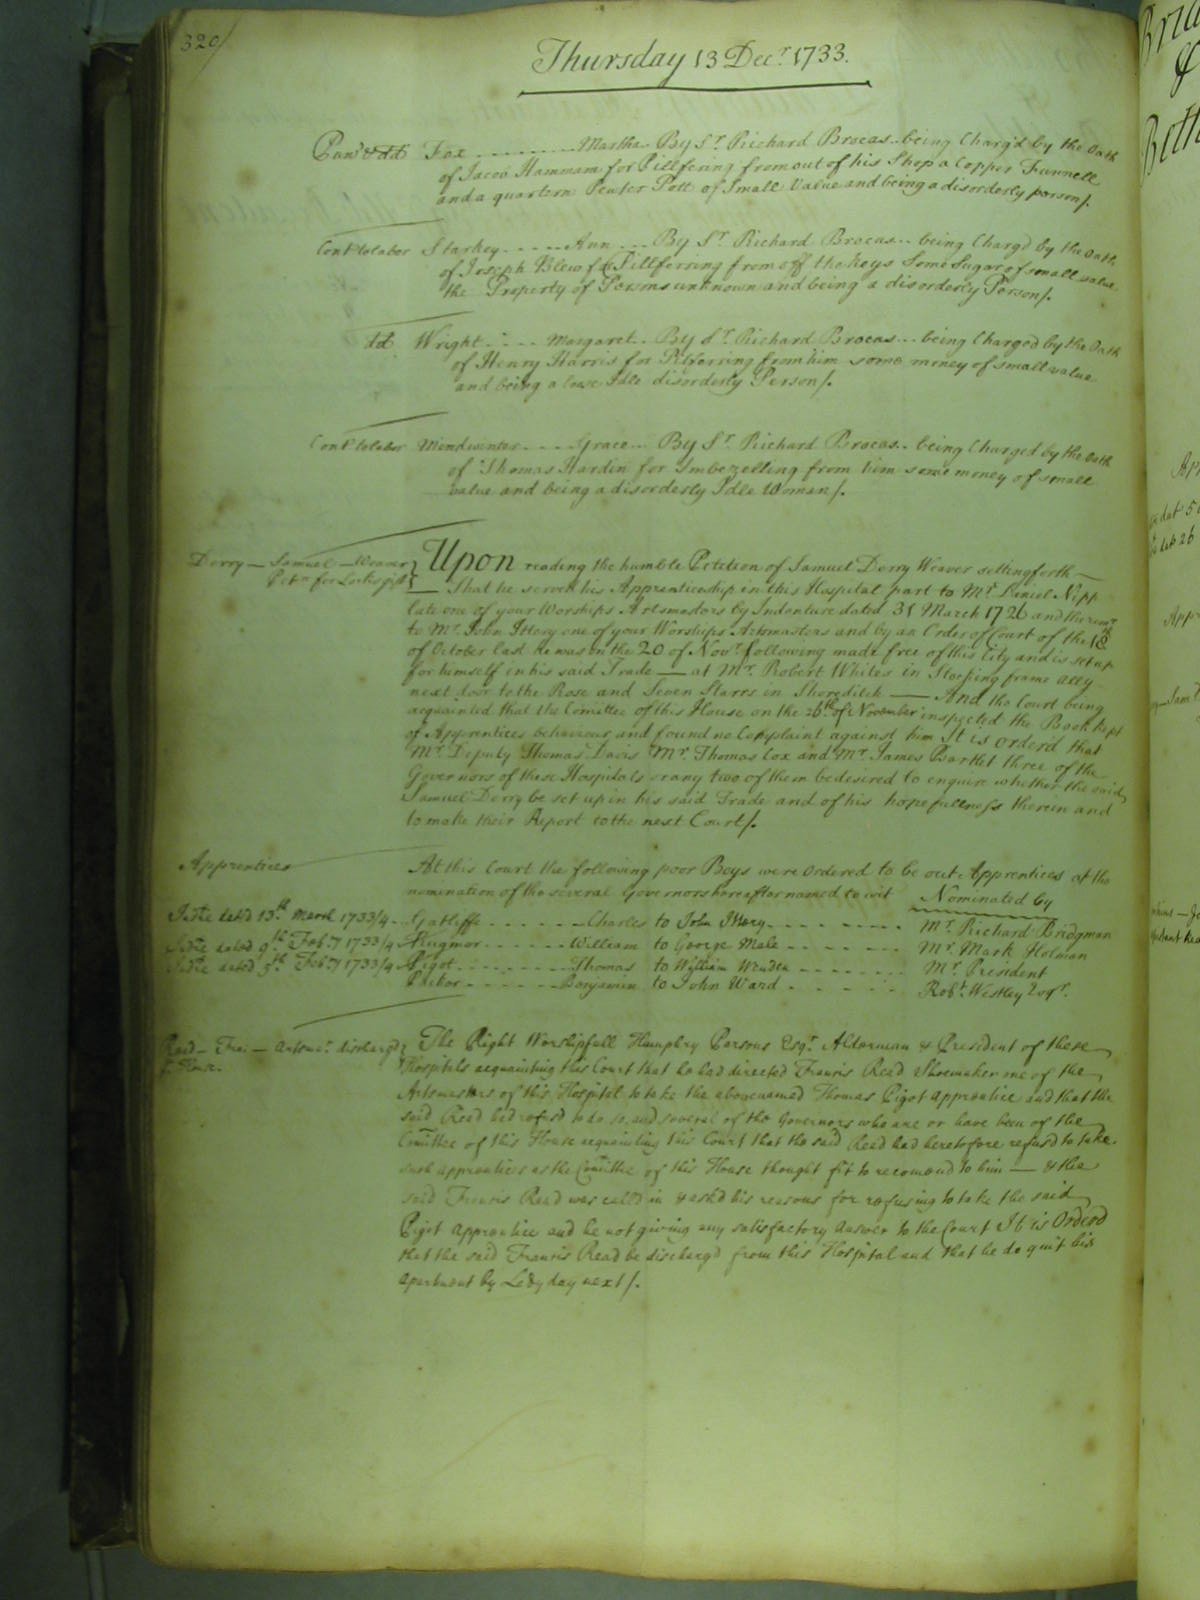 320
Thursday 13 Decr. 1733.
Pun'd & dd Fox Martha By Sr. Richard Brocas being Charg'd by the Oath
of Jacob Hammam for Pillfering from out of his Shop a Copper Funnell
and a quartern Pewter Pott of Small Value and being a disorderly person/.
Cont to labor Starkey Ann By Sr. Richard Brocas being Charg'd by the Oath
of Joseph Blew for Pillferring from off the Keys Some Sugar of small value
the Property of Persons unknown and being a disorderly Person/.
dd Wright Margaret By Sr. Richard Brocas being Charged by the Oath
of Henry Harris for Pilferring from him some money of small value
and being a loose Idle disorderly Person/.
Cont to labor Mindwinter Grace By Sr. Richard Brocas being Charged by the Oath
of Thomas Hardin for Imbezelling from him some money of small
value and being a disorderly Idle Woman/.
Derry — Samuel — Weaver
Petn for Lockes gift
Upon reading the humble Petition of Samuel Derry Weaver setting forth —
That he served his Apprenticeship in this Hospital part to Mr. Daniel Nipp
late one of your Worships Artsmasters by Indenture dated 31 March 1726 and the remr.
to Mr. John Ittery one of your Worships Artsmasters and by an Order of Court of the 18th
of October last he was on the 20 of Novr. following made free of this City and is set up
for himself in his said Trade — at Mr. Robert Whites in Stocking frame ally
next door to the Rose and Seven Starrs in Shoredich — And the Court being
acquainted that the Comittee of this House on the 26th of November inspected the Book kept
of Apprentices behaviour and found no Complaint against him It is orderd that
Mr. Deputy Thomas Davis Mr. Thomas Cox and Mr. James Bartlet three of the
Governors of these Hospitals or any two of them be desired to enquire whether the said
Samuel Derry be set up in his said Trade and of his hopefullness therein and
to make their Report to the next Court/.
Apprentices
At this Court the following poor Boys were ordered to be out Apprentices at the
nomination of the several Governors hereafter named to wit Nominated by
Indre dated 13th March 1733/4 Gatliffe Charles to John Ittery Mr. Richard Bridgman
Indre dated 9th Feb:ry 1733/4 William to George Male Mr. Mark Holman
Indre dated 5th Feb:ry 1733/4 Pigot Thomas to William Wenden Mr. President
Benjamin to John Ward Robt. Westley Esqr.
Read — Fra: — Artsmr. discharg'd
ye House.
The Right Worshipfull Humphry Parsons Esqr. Alderman & President of these
Hospitals acquainting this Court that he had directed Francis Read Shoemaker one of the
Artsmasters of this Hospital to take the abovenamed Thomas Pigot apprentice and that the
said Read had refus'd to do so, and several of the Governors who are or have been of the
Comittee of this House acquainting this Court that the said Read had heretofore refus'd to take
such apprentices as the Comittee of this House thought fit to recomend to him — & the
said Francis Read was call'd in & ask'd his reasons for refusing to take the said
Pigot apprentice and he not giving any satisfactory answer to the Court It is Orderd
that the said Francis Read be discharg'd from this Hospital and that he do quit his
apartment by Lady day next/.